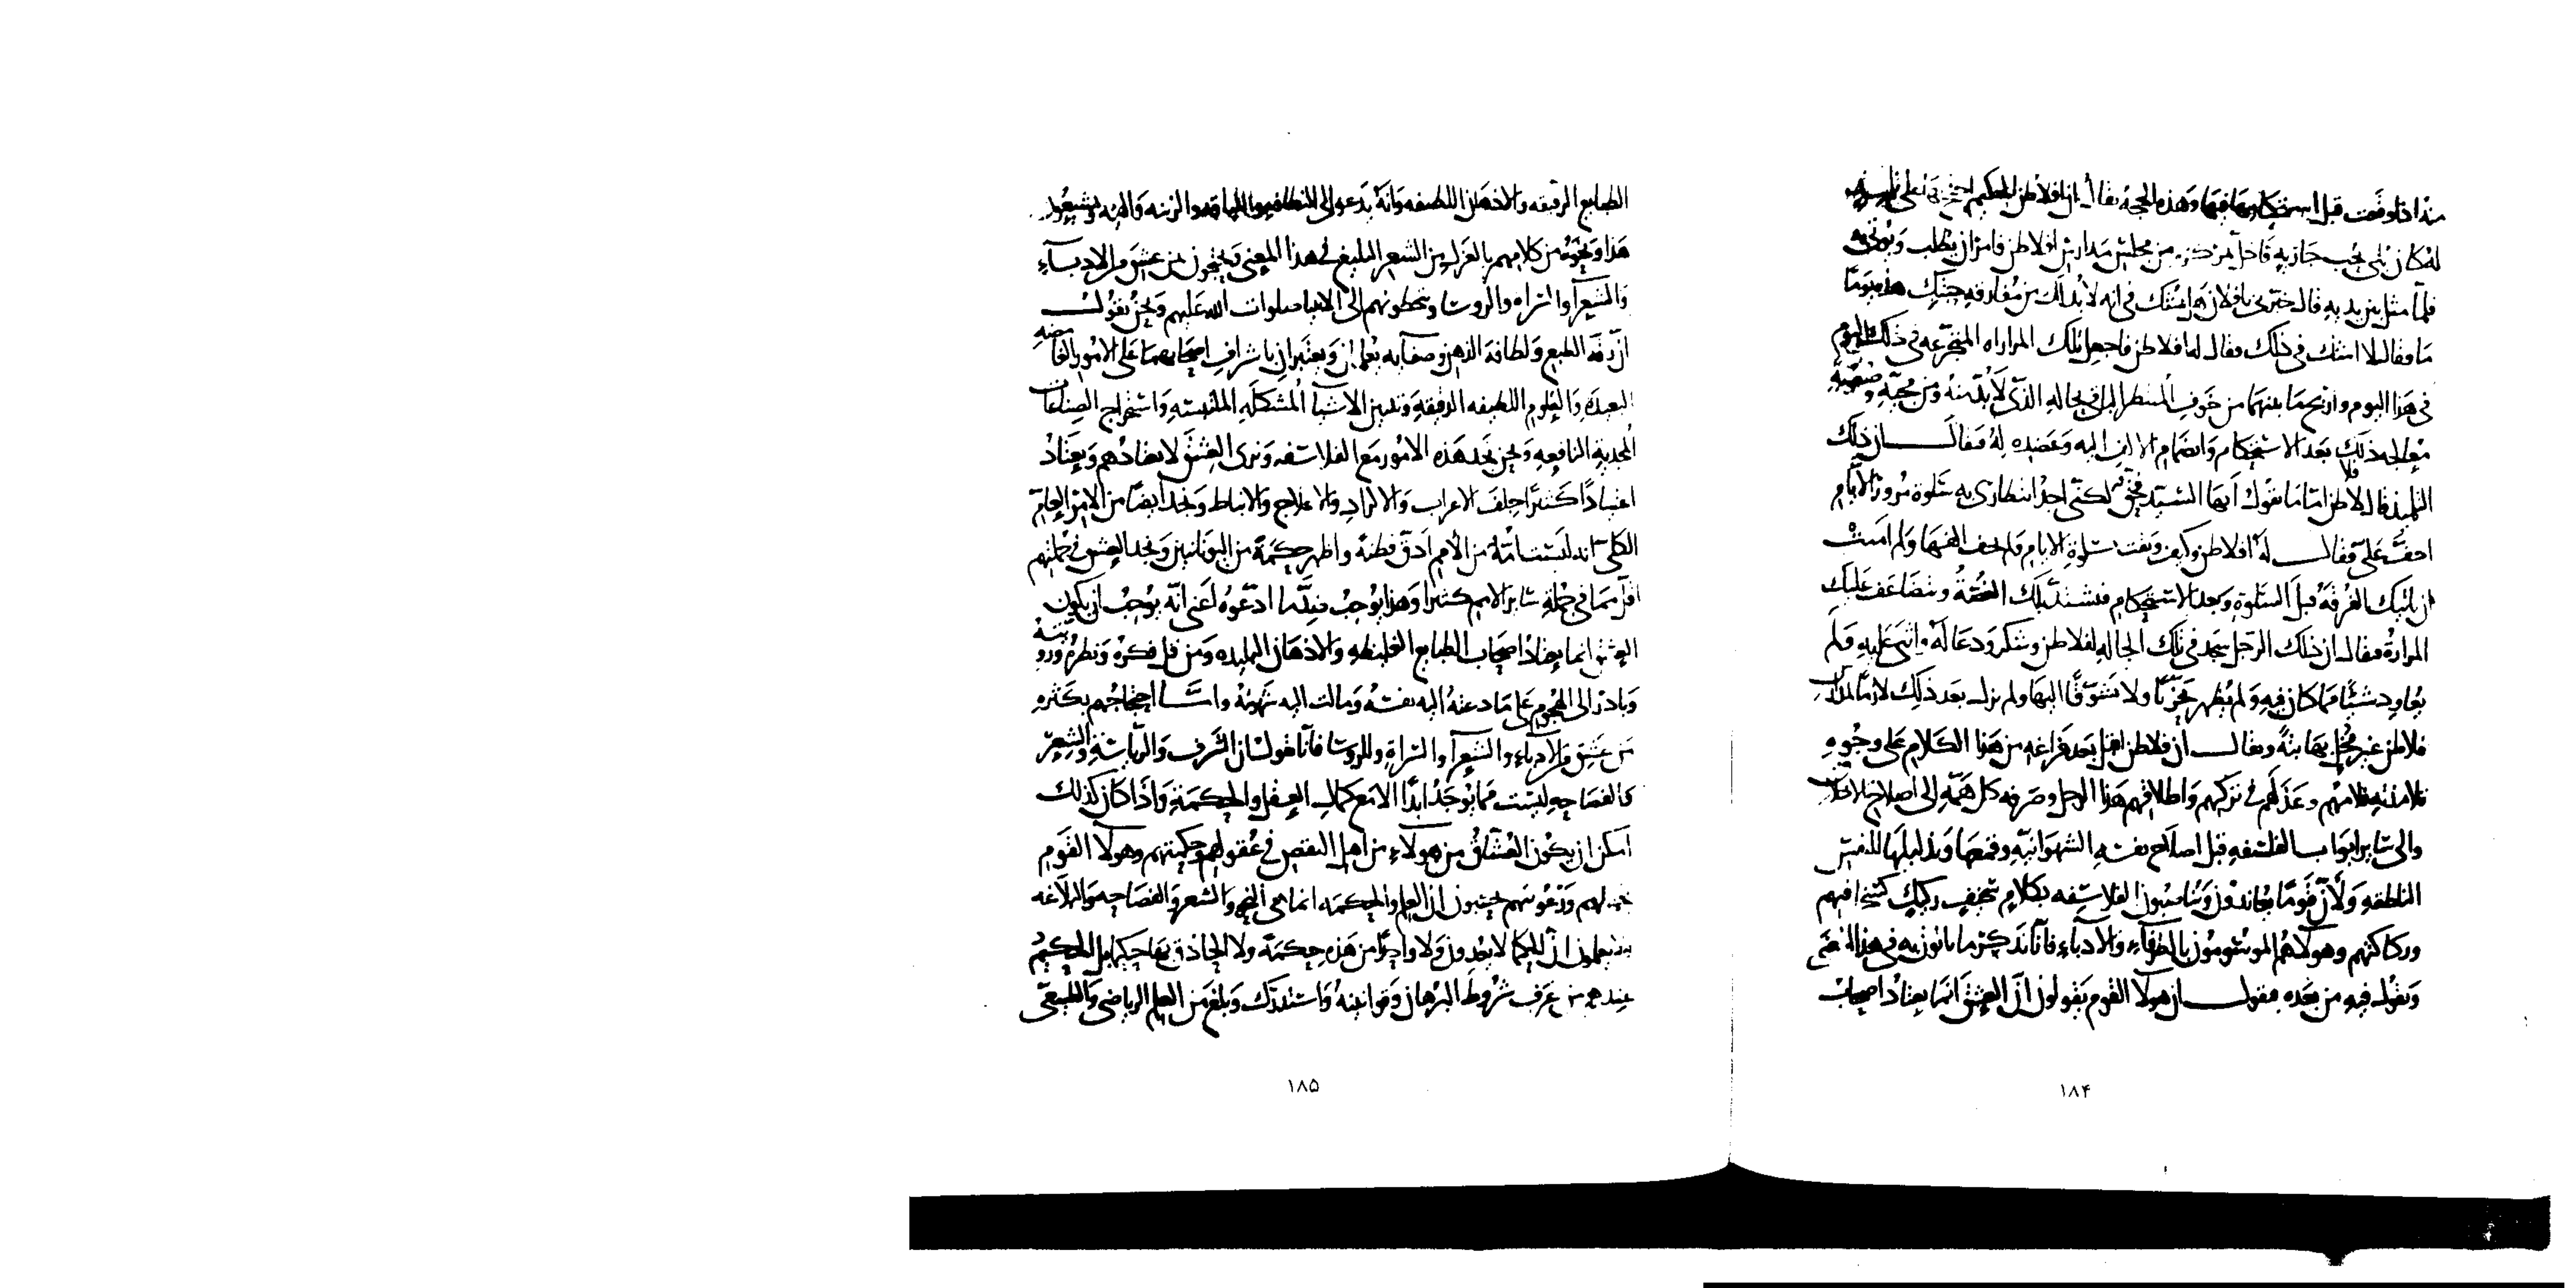 منه اذا وقعت قبل استحكامها فيها وهذه الحجة يقال ان افلاطن الحكيم احتج بها على تلميذ
له كان بلى بحب جارية فاخل بمركزه من مجلس مدارس افلاطن فامر ان يطلب ويؤتى به
فلما مثل بين يديه قال خبرنى يا فلان هل تشك فى انه لا بد لك من مفارقة حبتك هذه يوما
ما فقال لا اشك فى ذلك فقال له افلاطن فاجعل تلك المرارة المتجرعة فى ذلك اليوم
فى هذا اليوم وازح ما بينهما من خوف المنتظر الباقى بحاله الذى لا بد منه ومن محبته وصعوبة
معالجة ذلك بعد الاستحكام وانضمام الالف اليه وعضده له فقال ان ذلك
التلميذ قال لافلاطن اما ما تقول ايها السيد فحق لكنى اجد انتظارى به سلوة مرور الايام
اخف على فقال له افلاطن وكيف وثقت بسلوة الايام ولم تخف الفها ولم امنت
ان تاتيك الفرقة قبل السلوة وبعد الاستحكام فتشتد بك الغصة وتتضاعف عليك
المرارة فقال ان ذلك الرجل سجد فى تلك الحالة لافلاطن وشكره ودعا له واثنى عليه ولم
يعاود شيئا مما كان فيه ولم يظهر تحزنا ولا تشوقا اليها ولم يزل بعد ذلك لازما لمدارس
فلاطن غير مخل بها بتة ويقال ان فلاطن اقبل بعد فراغه من هذا الكلام على وجوه
تلامذته فلامهم وعذلهم فى تركهم واطلاقهم هذا الرجل وصرفه كل همته الى اصلاح الاخلاق
والى سائر ابواب الفلسفة قبل اصلاح نفسه الشهوانية وقمعها وتذليلها للنفس
الناطقة ولان قوما يعاندون ويناصبون الفلاسفة بكلام سخيف ركيك كسخافتهم
وركاكتهم وهولاء هم الموسومون بالظرفاء والادباء فانا نذكر ما ياتون به فى هذا المعنى
ونقول فيه من بعده فنقول ان هولاء القوم يقولون ان العشق انما يعتاد اصحاب
١٨۴
الطبايع الرقيقة والاذهان اللطيفة وانه يدعو الى النظافة واللباقة والزينة والهيئة ويشيعون
هذا ونحوه من كلامهم بالغزل من الشعر البليغ فى هذا المعنى ويحتجون بمن عشق من الادباء
والشعراء والسراة والرؤسا ويتخطونهم الى الانبيا صلوات الله عليهم ونحن نقول
ان رقة الطبع ولطافة الذهن وصفاءه يعلمان ويعتبران باشراف اصحابهما على الامور الغامضة
البعيدة والعلوم اللطيفة الدقيقة وتبيين الاشيا المشكلة الملتبسة واستخراج الصناعات
المجدية النافعة ونحن نجد هذه الامور مع الفلاسفة ونرى العشق لا يعتادهم ويعتاد
اعتيادا كثيرا اجلاف الاعراب والاكراد والاعلاج والانباط ونجد ايضا من الامر العام
الكلى انه ليست امة من الامم ادق فطنة واظهر حكمة من اليونانيين ونجد العشق فى جملتهم
اقل مما فى جملة سائر الامم كثيرا وهذا يوجب ضد ما ادعوه اعنى انه يوجب ان يكون
العشق انما يعتاد اصحاب الطبايع الغليظة والاذهان البليدة ومن قل فكره ونظره ورويته
وبادر الى الهجوم على ما دعته اليه نفسه ومالت اليه شهوته واما احتجاجهم بكثرة
من عشق من الادباء والشعراء والسراة والرؤسا فانا نقول ان الشرف والرياسة والشعر
والفصاحة ليست مما يوجد ابدا الا مع كمال العقل والحكمة واذا كان كذلك
امكن ان يكون العشاق من هولاء من اهل النقص فى عقولهم وحكمتهم وهولاء القوم
لجهلهم ورعونتهم يحسبون ان العلم والحكمة انما هى النحو والشعر والفصاحة والبلاغة
ولا يعلمون ان الحكما لا يعدون ولا واحدا من هذه حكمة ولا الحاذق بها حكيما بل الحكيم
عندهم من عرف شروط البرهان وقوانينه واستدرك وبلغ من العلم الرياضى والطبيعى
١٨۵